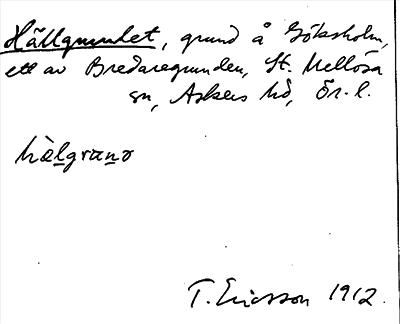 Hällgrundet, grund å Göksholm,
ett av Bredaregrunden, St. Mellösa
sn, Askers hd, Ör. l.
T. Ericsson 1912.